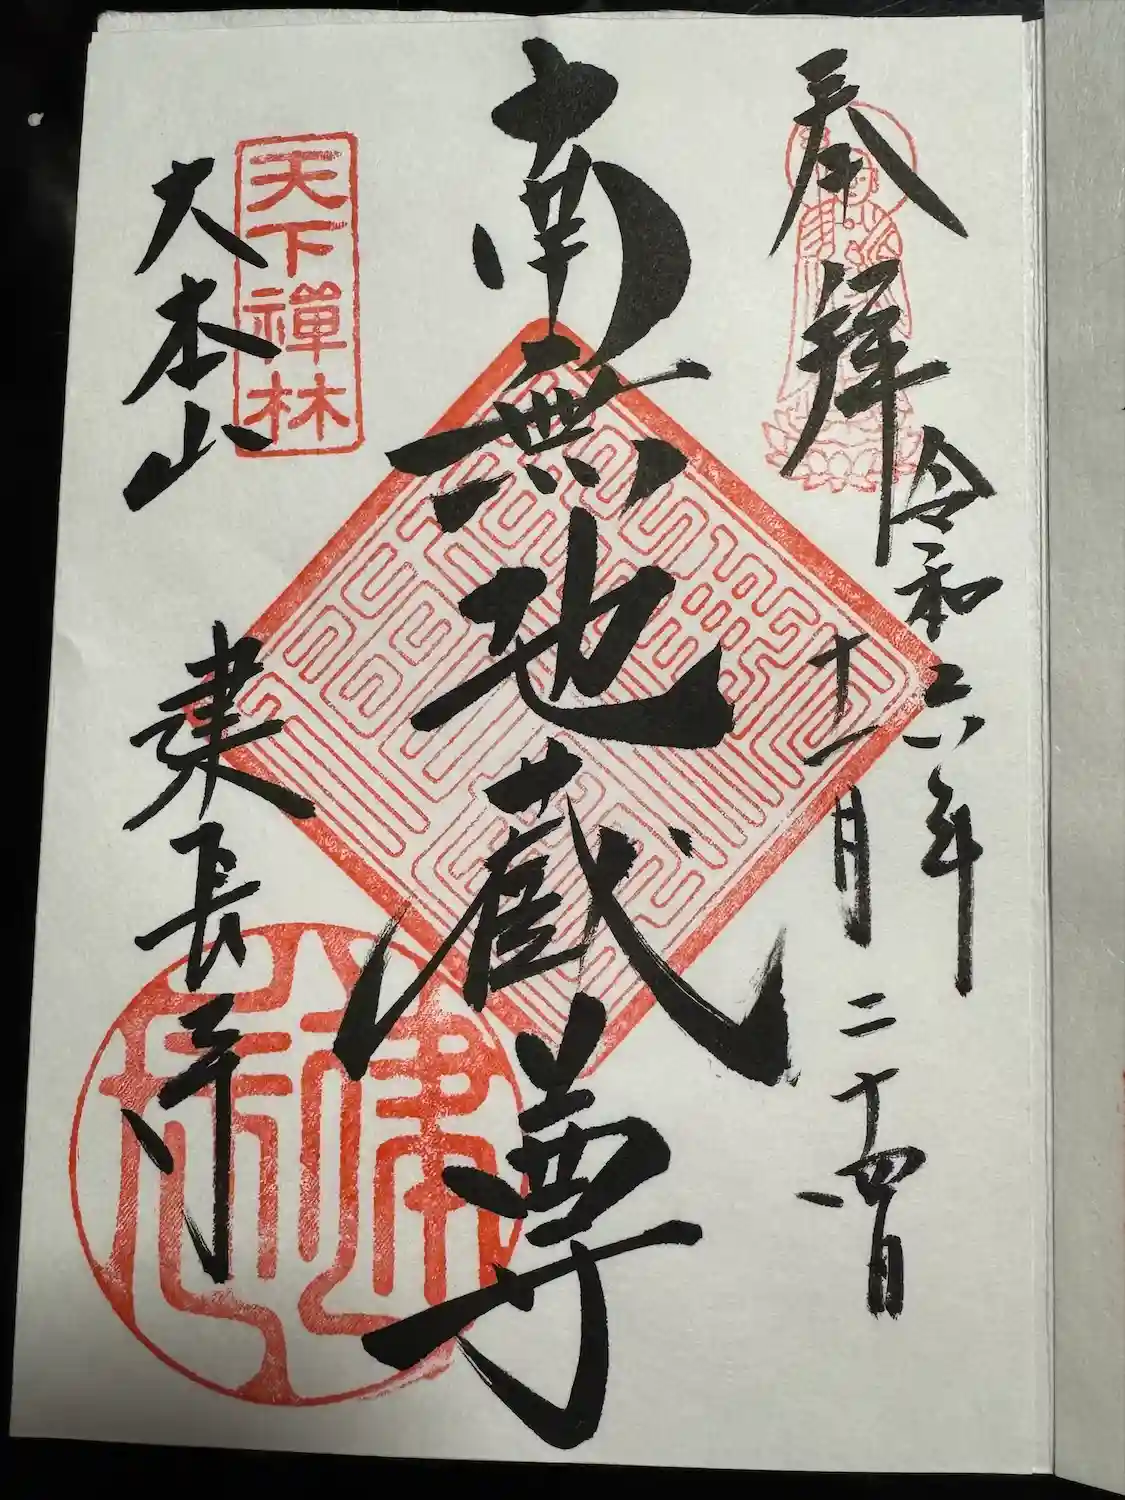 奉拝
令和六年
十一月二十四日
南無地蔵尊
天下禪林
大本山
建長寺
建長